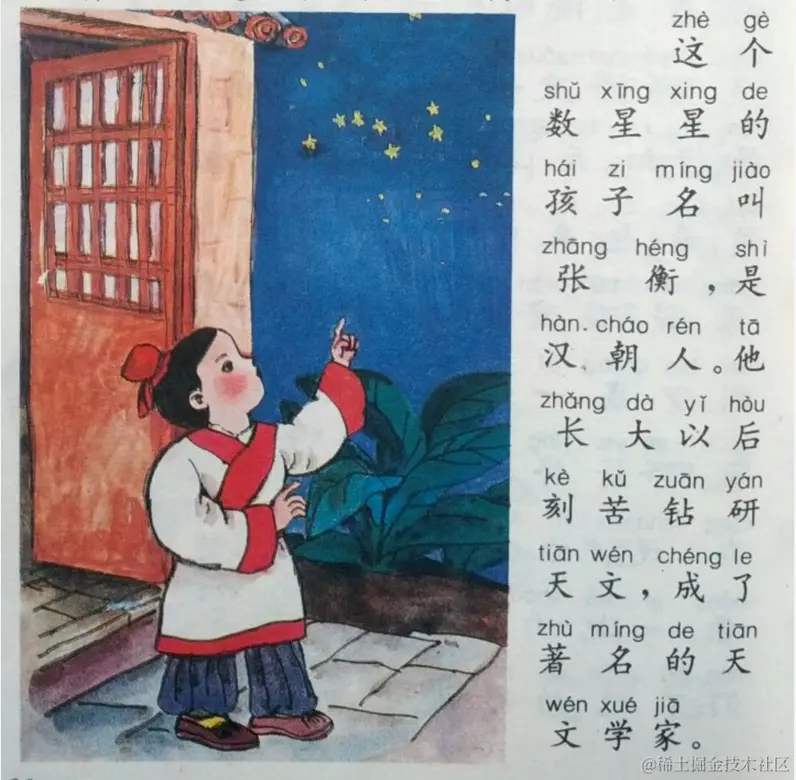 zhè gè
这个
shǔ xīng xing de
数星星的
hái zi míng jiào
孩子名叫
zhāng héng shì
张衡，是
hàn cháo rén tā
汉朝人。他
zhǎng dà yǐ hòu
长大以后
kè kǔ zuān yán
刻苦钻研
tiān wén chéng le
天文，成了
zhù míng de tiān
著名的天
wén xué jiā
文学家。
@稀土掘金技术社区